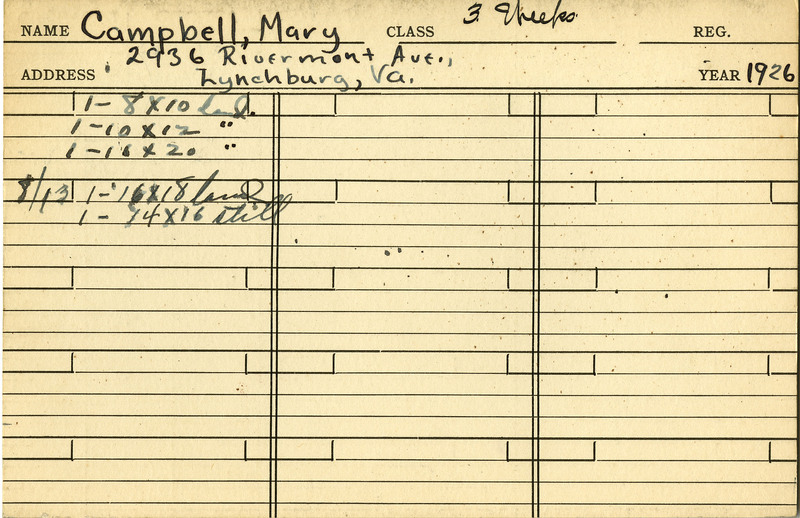 NAME Campbell, Mary CLASS 3 Weeks REG.
ADDRESS 2936 Rivermont Ave.,
Lynchburg, Va. YEAR 1926
1 - 8 X 10 land.
1 - 10 X 12 "
1 - 16 X 20 "
8/13 1 - 16 X 18 land
1 - 14 X 16 still